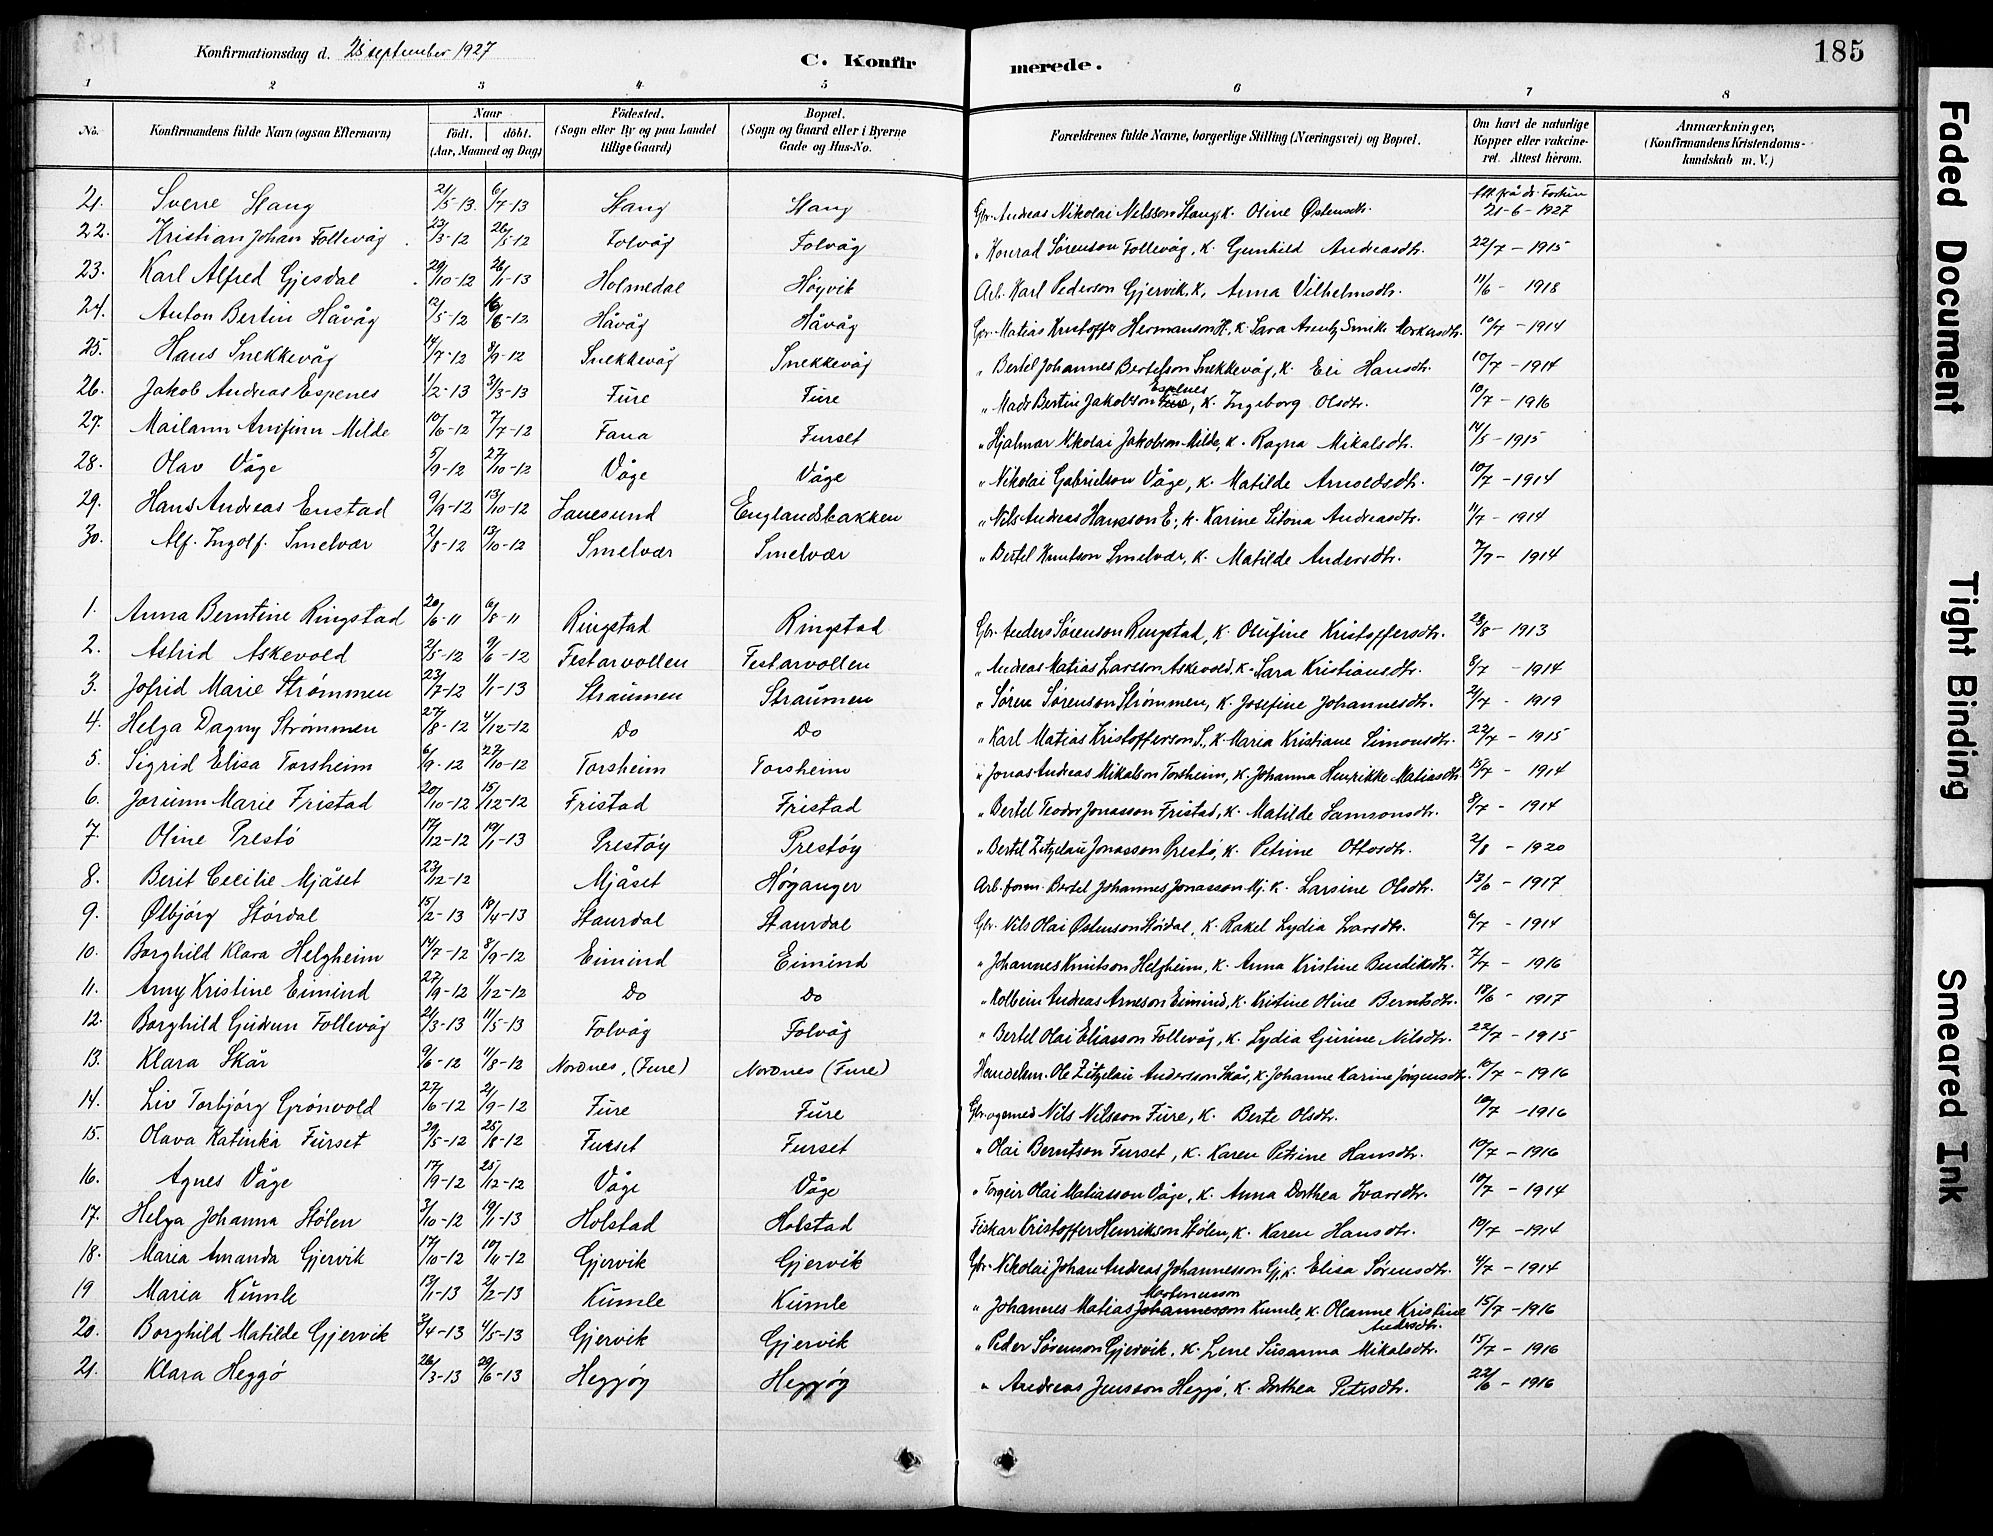 Konfirmationsdag d. 25 september 1927 C. Konfirmerede. 185
1 2 3 4 5 6 7 8
No. Konfirmandens fulde Navn (ogsaa Efternavn) Naar födt. döbt. (Aar, Maaned og Dag) Födested. (Sogn eller By og paa Landet tillige Gaard) Bopæl. (Sogn og Gaard eller i Byerne Gade og Hus-No. Forældrenes fulde Navne, borgerlige Stilling (Næringsvei) og Bopæl. Om havt de naturlige Kopper eller vakcineret. Attest herom. Anmærkninger, (Konfirmandens Kristendomskundskab m. V.)
21. Sverre Stang 21/5-13. 6/7-13 Stang Stang Gbr. Andreas Nikolai Nilsson Stang, k. Oline Østensdtr. Att. frå dr. 21-6-1927
22. Kristian Johan Follevåg 23/3-12 26/5-12 Folvåg Folvåg " Konrad Sørenson Follevåg, k. Gunhild Andreasdtr. 22/7-1915
23. Karl Alfred Gjesdal 29/10-12 26/1-13 Holmedal Høyvik Arb. Karl Pederson Gjervik, k, Anna Vilhelmsdtr. 11/6-1918
24. Anton Bertin Håvåg 12/5-12 16/6-12 Håvåg Håvåg Gbr. Matias Kristoffer Hermanson H, k. Sara 10/7-1914
25. Hans Snekkevåg 14/7-12 8/9-12 Snekkevåg Snekkevåg " Bertel Johannes Bertelson Snekkevåg, k. Eli Hansdtr. 10/7-1914
26. Jakob Andreas Espenes 1/2-13 3/3-13 Fure Fure " Mads Bertin Jakobson Espenes, k. Ingeborg Olsdtr. 10/7-1916
27. Mailann Arnfinn Milde 10/6-12 7/7-12 Fana Furset " Hjalmar Nikolai Jakobson Milde, k. Ragna Mikalsdtr. 14/5-1915
28. Olav Våge 5/9-12 27/10-12 Våge Våge " Nikolai Gabrielson Våge, k. Matilde Arnoldsdtr. 10/7-1914
29. Hans Andreas Enstad 9/9-12 13/10-12 Lauesund Englandsbakken " Nils Andreas Hansson E., k. Karine Andreasdtr. 11/7-1914
30. Alf. Ingolf. Smelvær 2/8-12 13/10-12 Smelvær Smelvær " Bertel Knutson Smelvær, k. Matilde Andersdtr. 7/7-1914
1. Anna Berntine Ringstad 20/6-11 6/8-11 Ringstad Ringstad Gbr. Anders Sørenson Ringstad, k. Olufine Kristoffersdtr. 28/8-1913
2. Astrid Askevold 2/5-12 9/6-12 Festarvollen Festarvollen " Andreas Matias Larsson Askevold, k. Sara Kristiansdtr. 8/7-1914
3. Jofrid Marie Strømmen 23/7-12 1/1-13 Straumen Straumen " Søren Sørenson Strømmen, k. Josefine Johannesdtr. 2/7-1919
4. Helga Dagny Strømmen 27/8-12 4/12-12 Do Do " Karl Matias Kristofferson S., k. Maria Kristiane Simonsdtr. 22/7-1915
5. Sigrid Elisa Torsheim 6/9-12 27/10-12 Torsheim Torsheim " Jonas Andreas Mikalson Torsheim, k. Johanna Henrikke Matiasdtr. 15/7-1914
6. Jorunn Marie Fristad 20/10-12 15/12-12 Fristad Fristad " Bertel Teodor Jonasson Fristad, k. Matilde Samsonsdtr. 8/7-1914
7. Oline Prestø 17/12-12 19/1-13 Prestøy Prestøy " Bertel Zitzelau Jonasson Prestø, k. Petrine Ottosdtr. 2/8-1920
8. Berit Cecilie Mjåset 23/12-12 Mjåset Høganger Arb. form. Bertel Johannes Jonasson Mj. k. Larsine Olsdtr. 13/6-1917
9. Ølbjørg Stórdal 15/2-13 18/4-13 Staurdal Staurdal Gbr. Nils Olai Østenson Stórdal, k. Rakel Lydia Ivarsdtr. 6/7-1914
10. Borghild Klara Helgheim 14/7-12 8/9-12 Eimind Eimind " Johannes Knutson Helgheim, k. Anna Kristine Bendiksdtr. 7/7-1916
11. Amy Kristine Eimind 22/9-12 1/12-12 Do Do " Kolbein Andreas Arneson Eimind, k. Kristine Oline Berntsdtr. 18/6-1917
12. Borghild Gudrun Follevåg 21/3-13 11/5-13 Folvåg Folvåg " Bertel Olai Eliasson Follevåg, k. Lydia Gurine Nilsdtr. 22/7-1915
13. Klara Skår 9/6-12 11/8-12 Nordnes, (Fure) Nordnes (Fure) Handelsm. Ole Zitzelau Andersson Skår, k. Johanne Karine Jørgensdtr. 10/7-1916
14. Liv Torbjórg Grónvold 27/6-12 21/9-12 Fure Fure Gbr. Nils Nilsson Fure, k. Berte Olsdtr. 10/7-1916
15. Olava Katinka Furset 29/5-12 25/8-12 Furset Furset " Olai Berntson Furset, k. Karen Petrine Hansdtr. 10/7-1916
16. Agnes Våge 17/9-12 25/12-12 Våge Våge " Torgeir Olai Matiasson Våge, k. Anna Dorthea Ivarsdtr. 10/7-1914
17. Helga Johanna Stølen 3/10-12 19/1-13 Holstad Holstad Fiskar Kristoffer Henrikson Stølen, k. Karen Hansdtr. 10/7-1914
18. Maria Amanda Gjervik 17/10-12 10/11-12 Gjervik Gjervik Gbr. Nikolai Johan Andreas Johannesson Gj, k. Elisa Sørensdtr. 4/7-1914
19 Maria Kumle 13/1-13 2/2-13 Kumle Kumle " Johannes Matias Johannesson Mortenusson Kumle, k. Oleanne Kristine Andersdtr. 15/7-1916
20. Borghild Matilde Gjervik 2/4-13 4/5-13 Gjervik Gjervik " Peder Sørenson Gjervik, k. Lene Susanna Mikalsdtr. 15/7-1916
21. Klara Heggø 26/3-13 29/6-13 Heggøy Heggøy " Andreas Jensson Heggø, k. Dorthea Petersdtr. 22/6-1916
Faded Document
Tight Binding
Smeared Ink